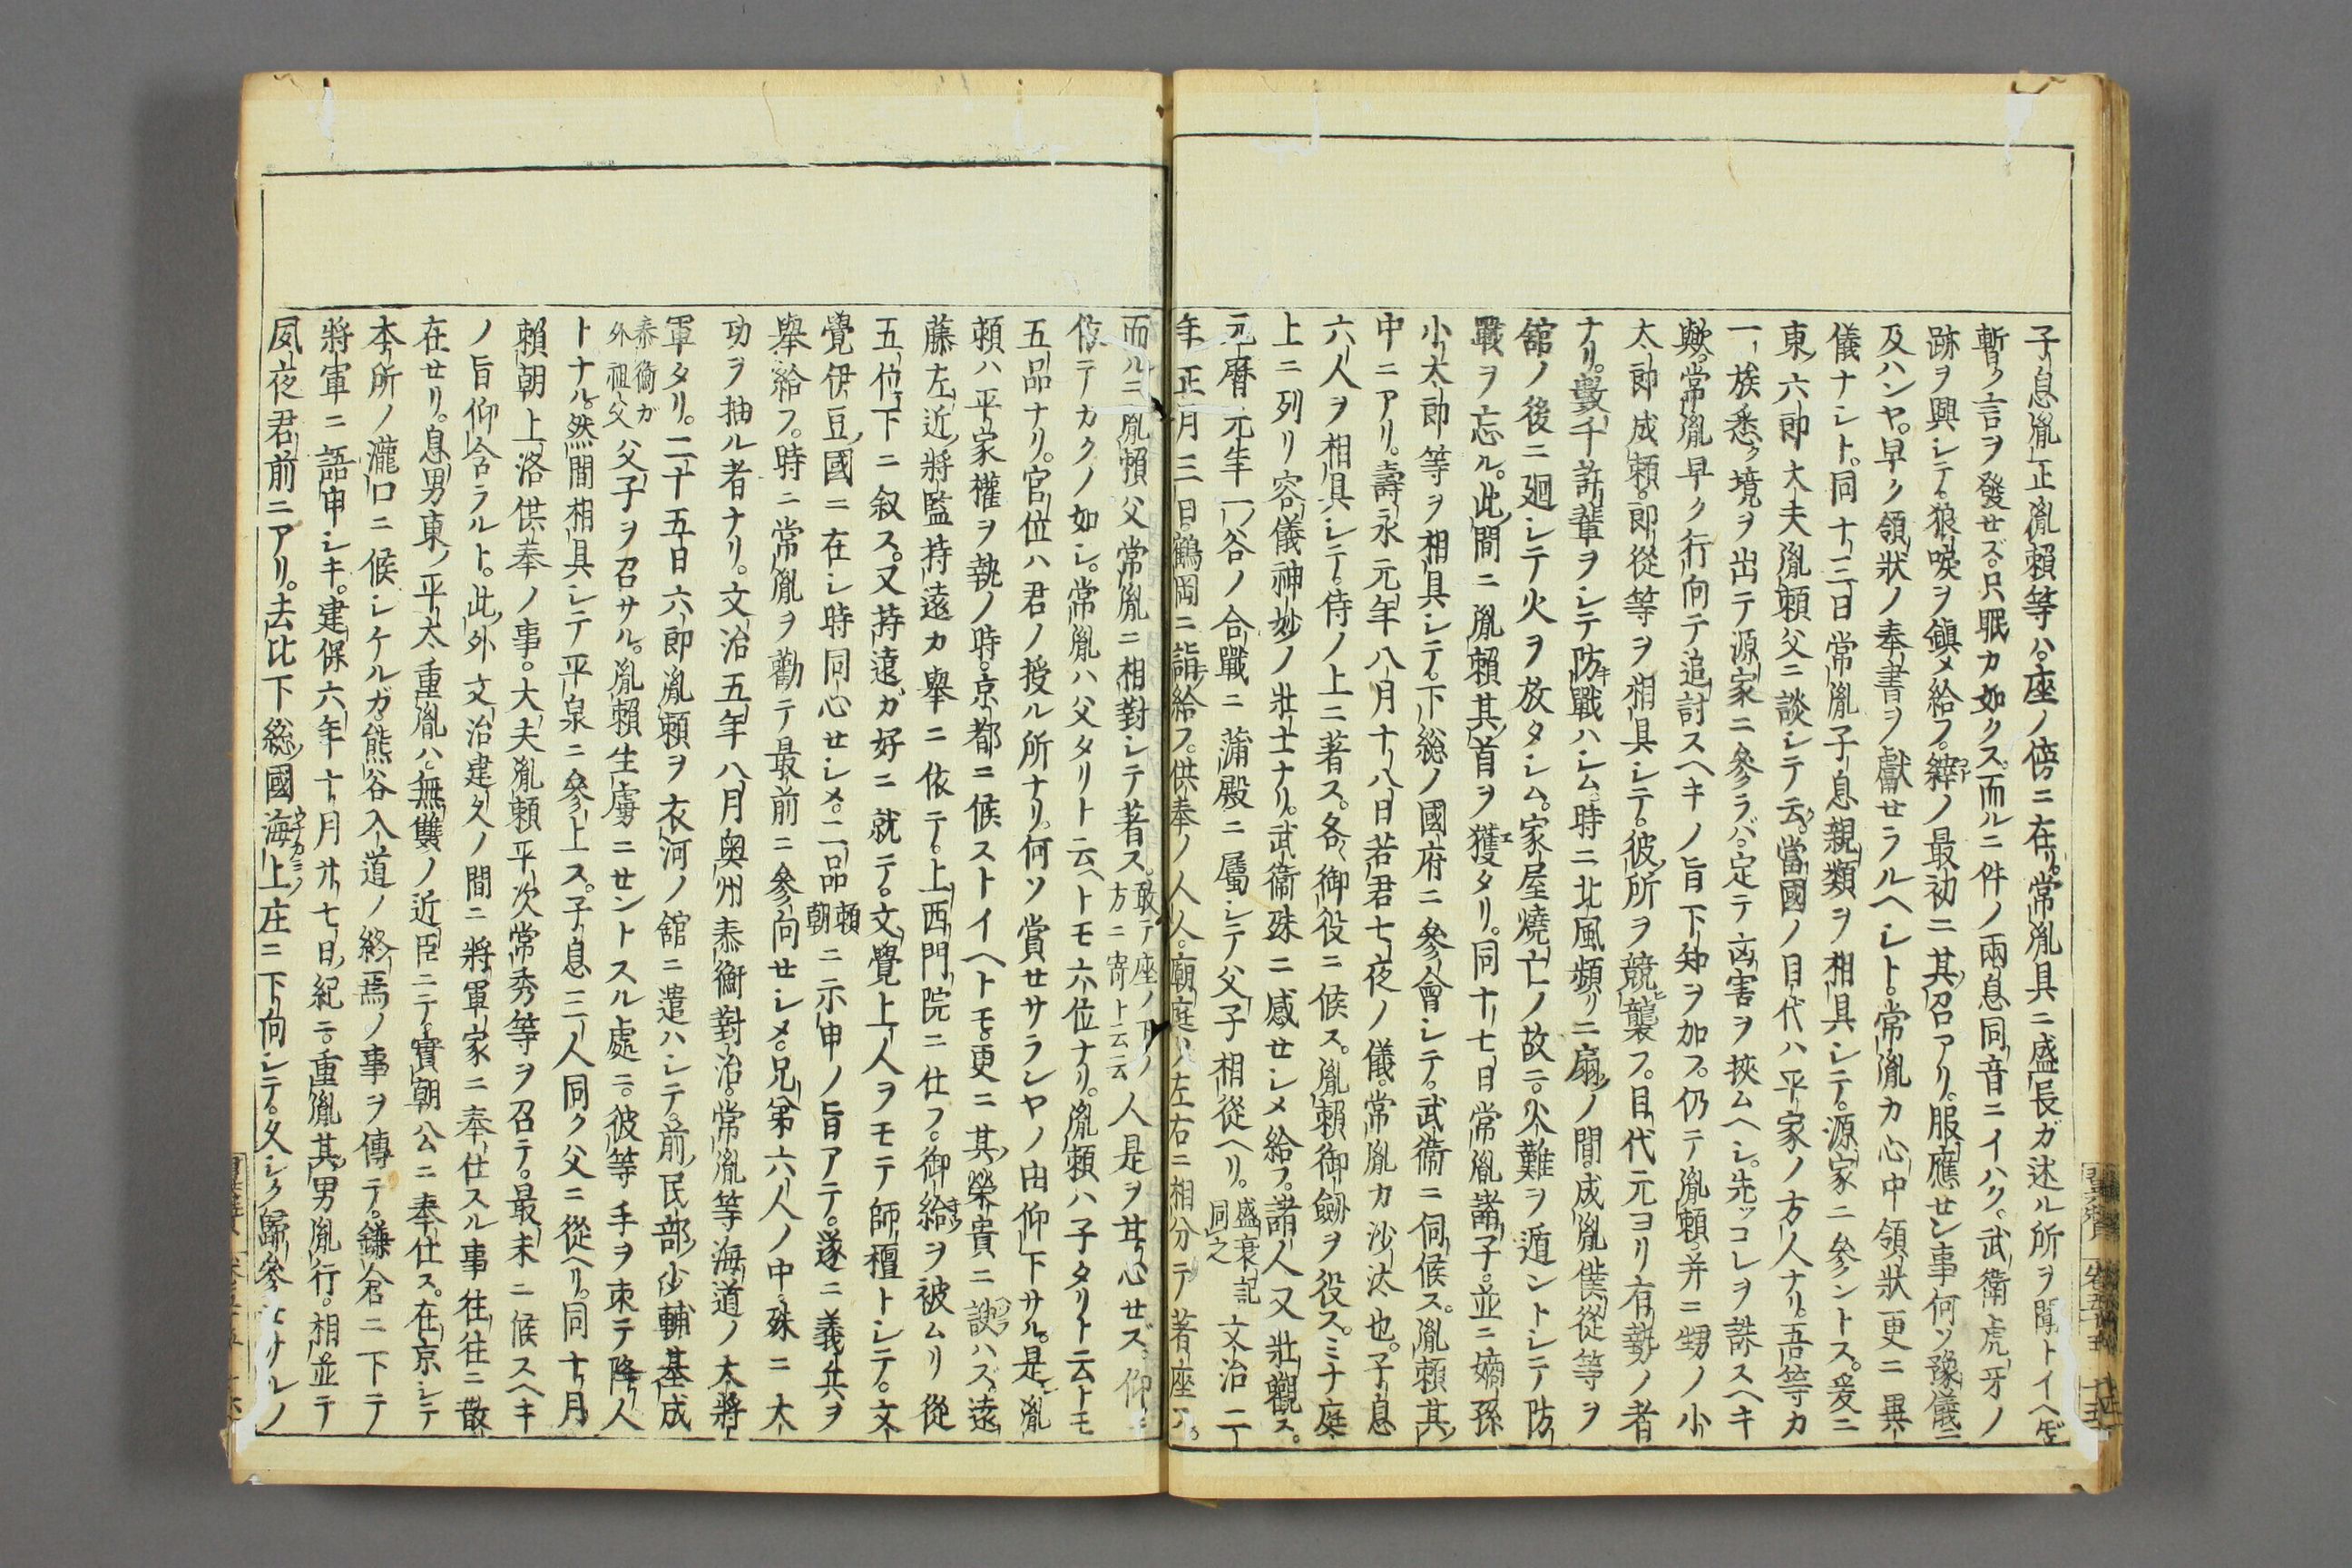 子息胤正胤賴等ハ。座ノ傍ニ在リ。常胤具ニ盛長ガ述ル所ヲ聞トイヘ𪜈
暫ク言ヲ發セズ。只眠カ如クス。而ルニ件ノ兩息同音ニイハク。武衛虎牙ノ
跡ヲ興シテ。狼唳ヲ鎭メ給フ。縡ノ最初ニ其召アリ。服應セン事何ソ豫儀ニ
及ハンヤ。早ク領狀ノ奉書ヲ獻セラルヘシト。常胤カ心中領狀更ニ異
儀ナシト。同十三日常胤子息親類ヲ相具シテ。源家ニ參ントス。爰ニ
東六郎大夫胤賴父ニ談シテ云。當國ノ目代ハ平家ノ方人ナリ。吾等カ
一族悉ク境ヲ出テ源家ニ參ラバ。定テ凶害ヲ挾ムヘシ。先ッコレヲ誅スヘキ
歟。常胤早ク行向テ追討スヘキノ旨下知ヲ加フ。仍テ胤賴并ニ甥ノ小
太郎成賴。郎從等ヲ相具シテ。彼所ヲ競襲フ。目代元ヨリ有勢ノ者
ナリ。數千許輩ヲシテ防戰ハシム。時ニ北風頻リニ扇ノ間。成胤僕從等ヲ
舘ノ後ニ廻シテ火ヲ放タシム。家屋燒亡ノ故ニ。火難ヲ遁ントシテ防
戰ヲ忘ル。此間ニ胤賴其首ヲ獲タリ。同十七日常胤諸子。並ニ嫡孫
小太郎等ヲ相具シテ。下総ノ國府ニ參會シテ。武衞ニ伺候ス。胤賴其
中ニアリ。壽永元年八月十八日若君七夜ノ儀。常胤カ沙汰也。子息
六人ヲ相具シテ。侍ノ上ニ著ス。各御役ニ候ス。胤賴御劔ヲ役ス。ミナ庭
上ニ列リ容儀神妙ノ壯士ナリ。武衞殊ニ感セシメ給フ。諸人又壯觀ス。
元曆元年一ノ谷ノ合戰ニ蒲殿ニ屬シテ父子相從ヘリ。盛衰記同之文治二
年正月三日。鶴岡ニ詣給フ。供奉ノ人人。廟庭ノ左右ニ相分テ著座ス。
而ルニ胤賴父常胤ニ相對シテ著ス。敢テ座ノ下ノ方ニ寄ト云云人是ヲ甘心セズ。仰ニ
依テカクノ如シ。常胤ハ父タリト云ヘトモ六位ナリ。胤賴ハ子タリト云トモ
五品ナリ。官位ハ君ノ授ル所ナリ。何ソ賞セサランヤノ由仰下サル。是胤
賴ハ平家權ヲ執ノ時。京都ニ候ストイヘトモ。更ニ其榮貴ニ諛ハズ。遠
藤左近將監持遠カ舉ニ依テ。上西門院ニ仕フ。御給ヲ被ムリ從
五位下ニ叙ス。又持遠ガ好ニ就テ。文覺上人ヲモテ師檀トシテ。文
覺伊豆國ニ在シ時同心セシメ。二品賴朝ニ示申ノ旨アテ。遂ニ義兵ヲ
舉給フ。時ニ常胤ヲ勸テ最前ニ參向セシメ。兄弟六人ノ中。殊ニ大
功ヲ抽ル者ナリ。文治五年八月奥州泰衡對治。常胤等海道ノ大將
軍タリ。二十五日六郎胤賴ヲ衣河ノ舘ニ遣ハシテ。前民部少輔基成
泰衡ガ外祖父父子ヲ召サル。胤賴生虜ニセントスル處ニ。彼等手ヲ束テ降人
トナル。然間相具シテ平泉ニ參上ス。子息三人同ク父ニ從ヘリ。同十月
賴朝上洛供奉ノ事。大夫胤賴平次常秀等ヲ召テ。最末ニ候スヘキ
ノ旨仰含ラルト。此外文治建久ノ間ニ將軍家ニ奉仕スル事往往ニ散
在セリ。息男東ノ平太重胤ハ。無雙ノ近臣ニテ。實朝公ニ奉仕ス。在京シテ
本所ノ瀧口ニ候シケルガ。熊谷入道ノ終焉ノ事ヲ傳テ。鎌倉ニ下テ
將軍ニ語申シキ。建保六年十月廿七日ノ紀ニ。重胤其男胤行。相並テ
夙夜君前ニアリ。去比下総國海上庄ニ下向シテ。久シク歸參セサルノ